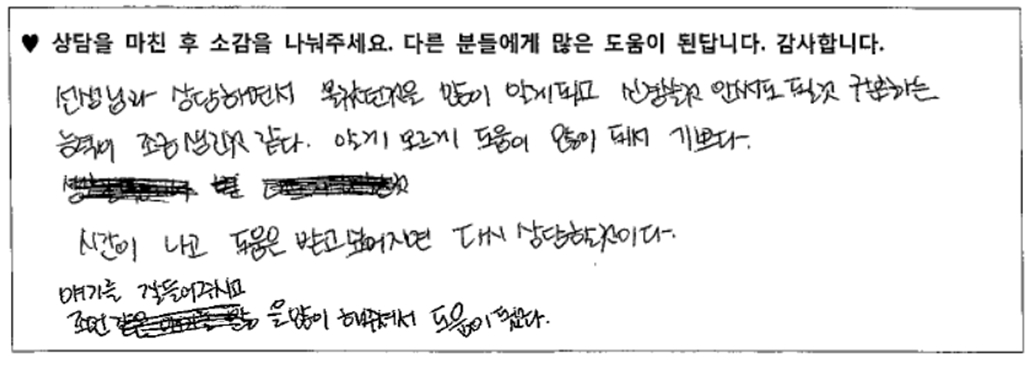 ♥ 상담을 마친 후 소감을 나눠주세요. 다른 분들에게 많은 도움이 된답니다. 감사합니다.
선생님과 상담하면서 몰랐던것을 많이 알게되고 신경쓸것 안써도 될것 구분하는
능력이 조금 생긴것 같다. 알게 모르게 도움이 많이 돼서 기쁘다.
시간이 나고 도움은 받고 싶어지면 다시 상담할것이다.
얘기를 잘들어주시고
조언 을많이 해주셔서 도움이 됐다.